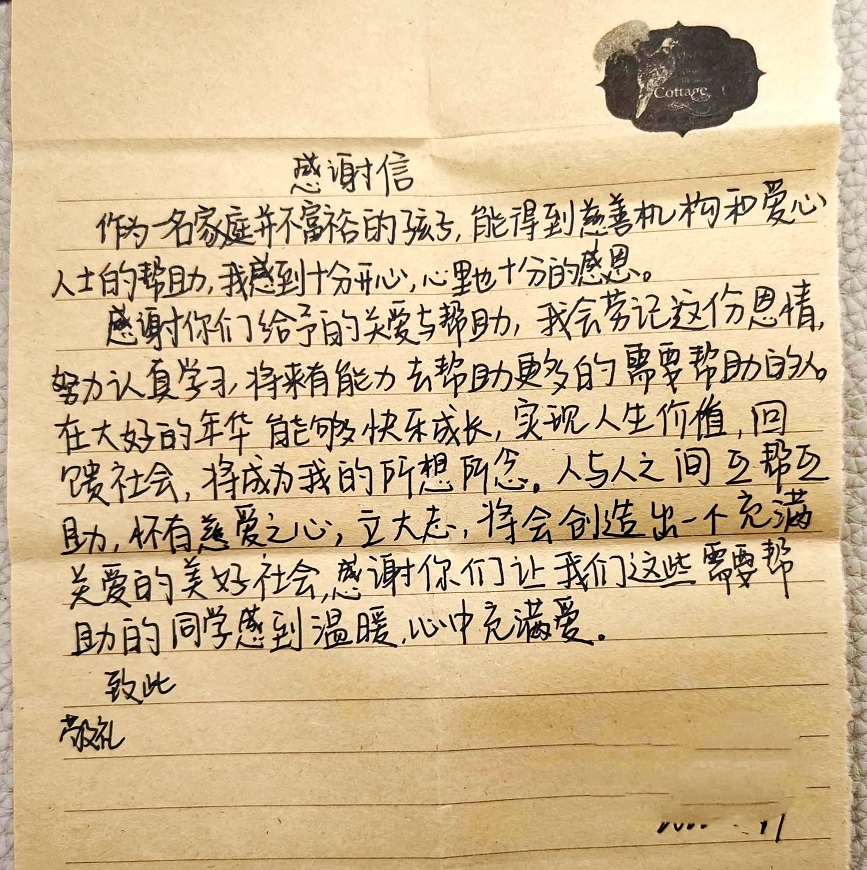 Cottage
感谢信
作为一名家庭并不富裕的孩子,能得到慈善机构和爱心
人士的帮助,我感到十分开心,心里也十分的感恩。
感谢你们给予的关爱与帮助,我会劳记这份恩情,
努力认真学习,将来有能力去帮助更多的需要帮助的人。
在大好的年华能够快乐成长,实现人生价值,回
馈社会,将成为我的所想所念。人与人之间互帮互
助,怀有慈爱之心,立大志,将会创造出一个充满
关爱的美好社会,感谢你们让我们这些需要帮
助的同学感到温暖,心中充满爱。
致此
敬礼